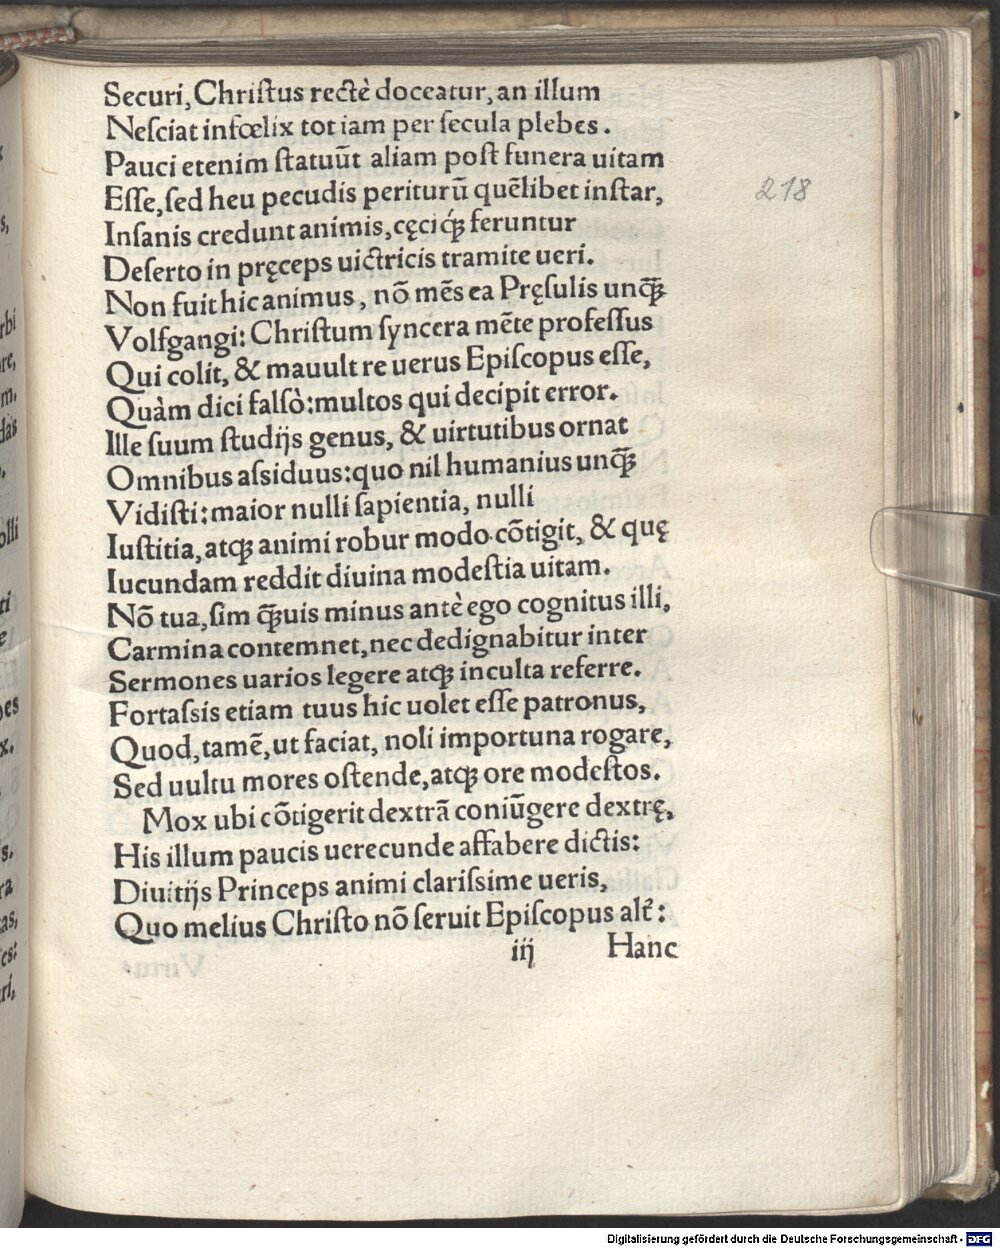 Securi, Chriſtus rectè doceatur, an illum
Neſciat infœlix tot iam per ſecula plebes.
Pauci etenim ſtatuūt aliam poſt funera uitam
Eſſe, ſed heu pecudis periturū quēlibet inſtar,
Inſanis credunt animis, cęci q́ꝫ feruntur
Deſerto in pręceps uictricis tramite ueri.
Non fuit hic animus, nō mēs ea Pręſulis unq̄ꝫ
Volfgangi: Chriſtum ſyncera mēte profeſſus
Qui colit, & mauult re uerus Epiſcopus eſſe,
Quàm dici falſò: multos qui decipit error.
Ille ſuum ſtudijs genus, & uirtutibus ornat
Omnibus aſsiduus: quo nil humanius unq̄ꝫ
Vidiſti: maior nulli ſapientia, nulli
Iuſtitia, atqꝫ animi robur modo cōtigit, & quę
Iucundam reddit diuina modeſtia uitam.
Nō tua, ſim q̄ꝫuis minus antè ego cognitus illi,
Carmina contemnet, nec dedignabitur inter
Sermones uarios legere atqꝫ inculta referre.
Fortaſsis etiam tuus hic uolet eſſe patronus,
Quod, tamē, ut faciat, noli importuna rogare,
Sed uultu mores oſtende, atqꝫ ore modeſtos.
Mox ubi cōtigerit dextrā coniūgere dextrę,
His illum paucis uerecunde affabere dictis:
Diuitijs Princeps animi clariſsime ueris,
Quo melius Chriſto nō ſeruit Epiſcopus alt̄:
iij Hanc
218
rbi
re,
m.
das
olli
ti
e
oes
x.
s.
ra
as,
es:
ri,
Digitalisierung gefördert durch die Deutsche Forschungsgemeinschaft - DFG